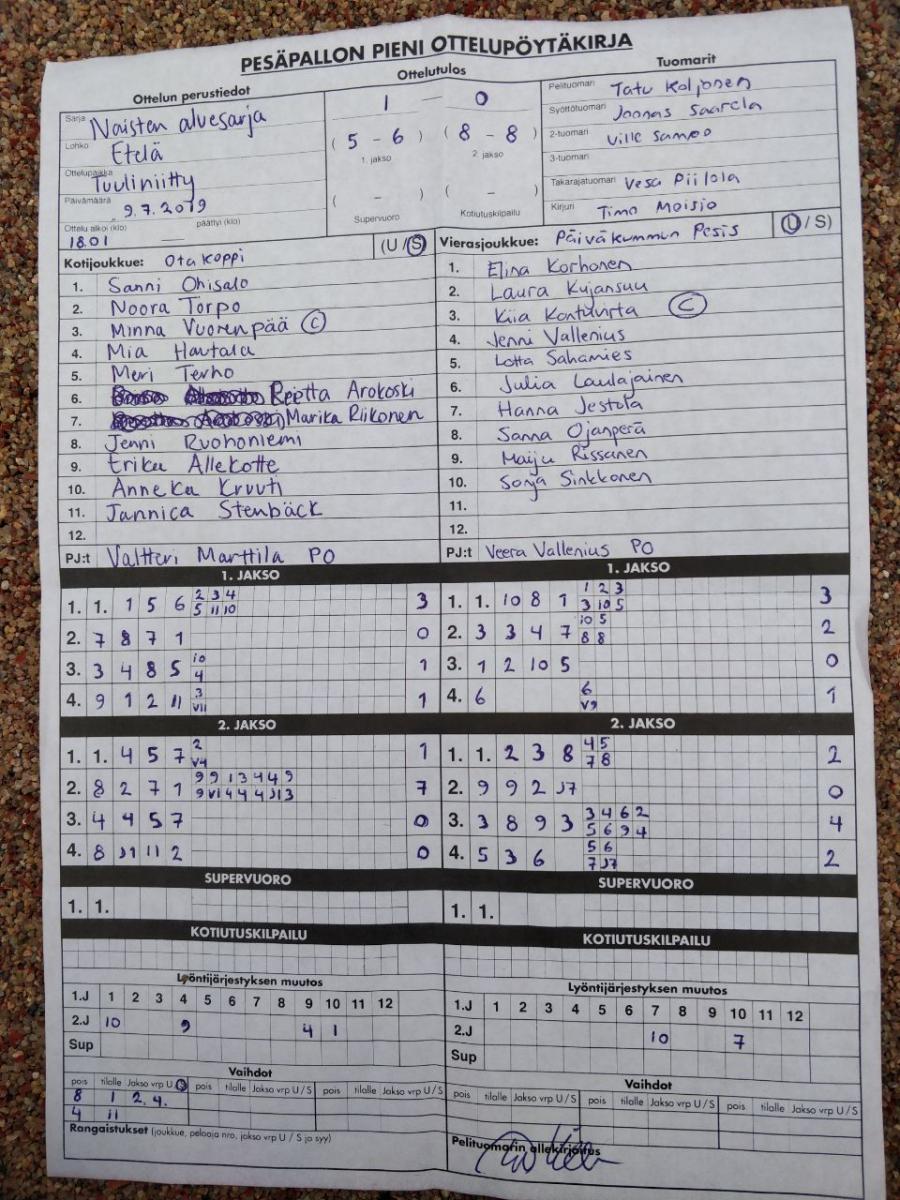 PESÄPALLON PIENI OTTELUPÖYTÄKIRJA
Ottelun perustiedot
Sarja Naisten aluesarja
Lohko Etelä
Ottelupaikka Tuuliniitty
Päivämäärä 9.7.2019
Ottelu alkoi (klo) päättyi (klo)
18.01 —
Ottelutulos
1 — 0
( 5 - 6 ) ( 8 - 8 )
1. jakso 2. jakso
( - ) ( - )
Supervuoro Kotiutuskilpailu
Tuomarit
Pelituomari Tatu Kaljonen
Syöttötuomari Joonas Saarela
2-tuomari Ville Sampo
3-tuomari
Takarajatuomari Vesa Piilola
Kirjuri Timo Moisio
Kotijoukkue: Ota koppi (U / S)
1. Sanni Ohisalo
2. Noora Torpo
3. Minna Vuorenpää C
4. Mia Hautala
5. Meri Terho
6. Reetta Arokoski
7. Marika Riikonen
8. Jenni Ruohoniemi
9. Erika Allekotte
10. Anneka Kruuti
11. Jannica Stenbäck
12.
PJ:t Valtteri Marttila PO
Vierasjoukkue: Päiväkummun Pesis (U / S)
1. Elina Korhonen
2. Laura Kujansuu
3. Kiia Kontuvirta C
4. Jenni Vallenius
5. Lotta Sahamies
6. Julia Laulajainen
7. Hanna Jestola
8. Sanna Ojanperä
9. Maiju Rissanen
10. Sonja Sinkkonen
11.
12.
PJ:t Veera Vallenius PO
1. JAKSO
1. 1. 1 5 6 2 3 4 3
5 11 10
2. 7 8 7 1 0
3. 3 4 8 5 10 1
4
4. 9 1 2 11 3 1
V11
2. JAKSO
1. 1. 4 5 7 2 1
V4
2. 8 2 7 1 9 9 1 3 4 4 9 7
9 V1 4 4 4 J1 3
3. 4 4 5 7 0
4. 8 J1 11 2 0
SUPERVUORO
1. 1.
KOTIUTUSKILPAILU
1. JAKSO
1. 1. 10 8 1 1 2 3 3
3 10 5
2. 3 3 4 7 10 5 2
8 8
3. 1 2 10 5 0
4. 6 6 1
V9
2. JAKSO
1. 1. 2 3 8 4 5 2
7 8
2. 9 9 2 J7 0
3. 3 8 9 3 3 4 6 2 4
5 6 9 4
4. 5 3 6 5 6 2
7 J7
SUPERVUORO
1. 1.
KOTIUTUSKILPAILU
Lyöntijärjestyksen muutos
1.J 1 2 3 4 5 6 7 8 9 10 11 12
2.J 10 9 4 1
Sup
Vaihdot
pois tilalle Jakso vrp U/S pois tilalle Jakso vrp U / S pois tilalle Jakso vrp U / S
8 1 2. 4.
4 11
Rangaistukset (joukkue, pelaaja nro, jakso vrp U / S ja syy)
Lyöntijärjestyksen muutos
1.J 1 2 3 4 5 6 7 8 9 10 11 12
2.J 10 7
Sup
Vaihdot
pois tilalle Jakso vrp U / S pois tilalle Jakso vrp U / S pois tilalle Jakso vrp U / S
Pelituomarin allekirjoitus